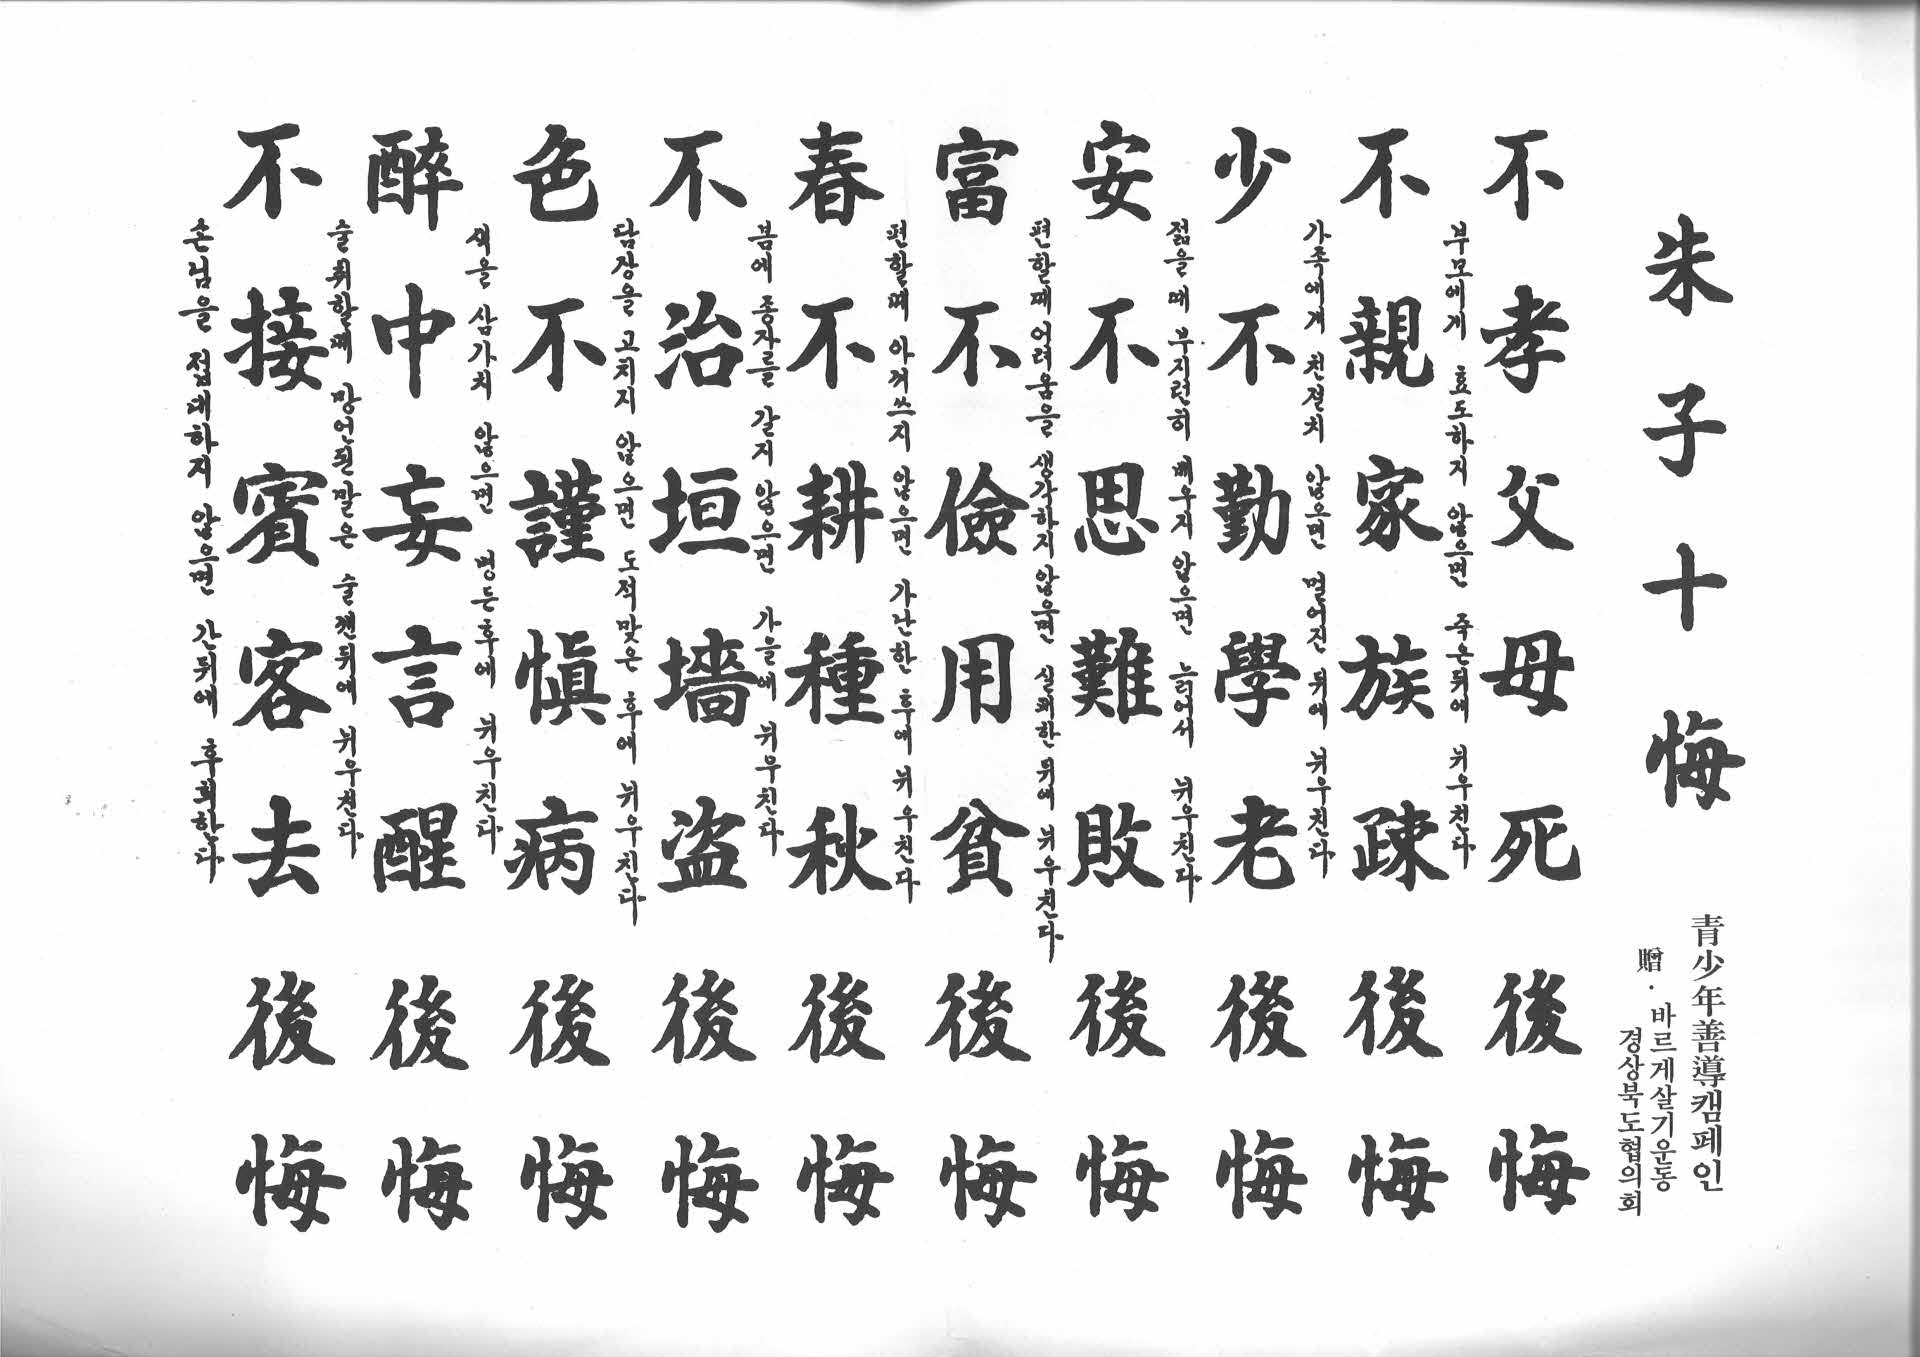 朱子十悔
青少年善導캠페인
贈·바르게살기운동
경상북도협의회
不孝父母死後悔
부모에게 효도하지 않으면 죽은뒤에 뉘우친다
不親家族疎後悔
가족에게 친절치 않으면 멀어진 뒤에 뉘우친다
少不勤學老後悔
젊을때 부지런히 배우지 않으면 늙어서 뉘우친다
安不思難敗後悔
편할때 어려움을 생각하지 않으면 실패한 뒤에 뉘우친다
富不儉用貧後悔
편할때 아껴쓰지 않으면 가난한 후에 뉘우친다
春不耕種秋後悔
봄에 종자를 갈지 않으면 가을에 뉘우친다
不治垣墻盜後悔
담장을 고치지 않으면 도적맞은 후에 뉘우친다
色不謹愼病後悔
색을 삼가치 않으면 병든후에 뉘우친다
醉中妄言醒後悔
술취할때 망언된말은 술깬뒤에 뉘우친다
不接賓客去後悔
손님을 접대하지 않으면 간뒤에 후회한다